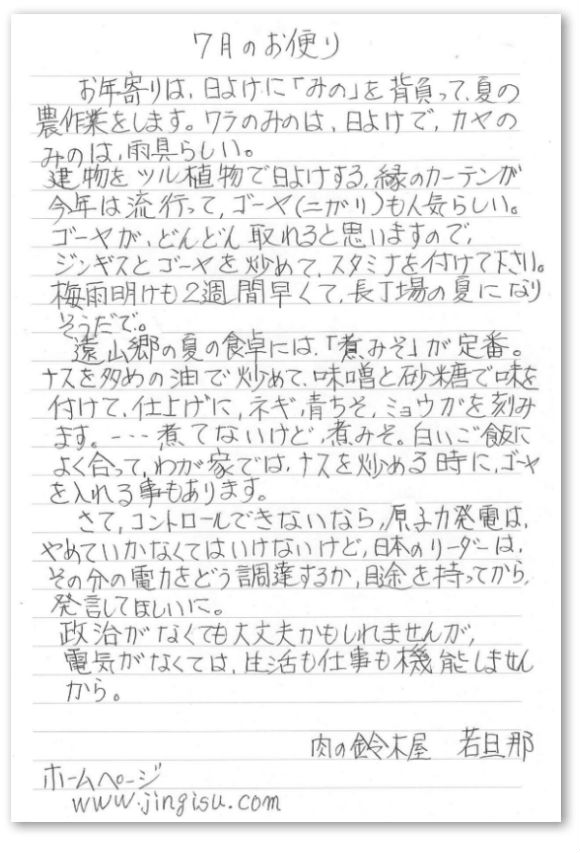 7月のお便り
お年寄りは、日よけに「みの」を背負って、夏の
農作業をします。ワラのみのは、日よけで、カヤの
みのは、雨具らしい。
建物をツル植物で日よけする、緑のカーテンが
今年は流行って、ゴーヤ(ニガリ)も人気らしい。
ゴーヤが、どんどん取れると思いますので、
ジンギスとゴーヤを炒めて、スタミナを付けて下さい。
梅雨明けも2週間早くて、長丁場の夏になり
そうだで。
遠山郷の夏の食卓には、「煮みそ」が定番。
ナスを多めの油で炒めて、味噌と砂糖で味を
付けて、仕上げに、ネギ、青ちそ、ミョウガを刻み
ます。---煮てないけど、煮みそ。白いご飯に
よく合って、わが家では、ナスを炒める時に、ゴーヤ
を入れる事もあります。
さて、コントロールできないなら、原子力発電は、
やめていかなくてはいけないけど、日本のリーダーは、
その分の電力をどう調達するか、目途を持ってから、
発言してほしいに。
政治がなくても大丈夫かもしれませんが、
電気がなくては、生活も仕事も機能しません
から。
肉の鈴木屋 若旦那
ホームページ
www.jingisu.com